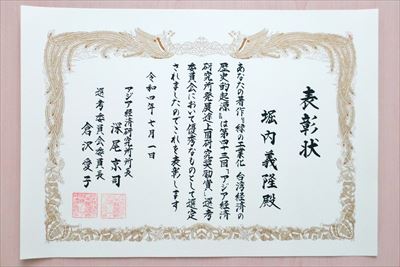 表彰状
堀内義隆殿
あなたの著作『緑の工業化 台湾経済の
歴史的起源』は第四十三回「アジア経済
研究所発展途上国研究奨励賞」選考
委員会において優秀なものとして選定
されましたのでこれを表彰します
令和四年七月一日
アジア経済研究所所長
深尾京司
選考委員会委員長
倉沢愛子